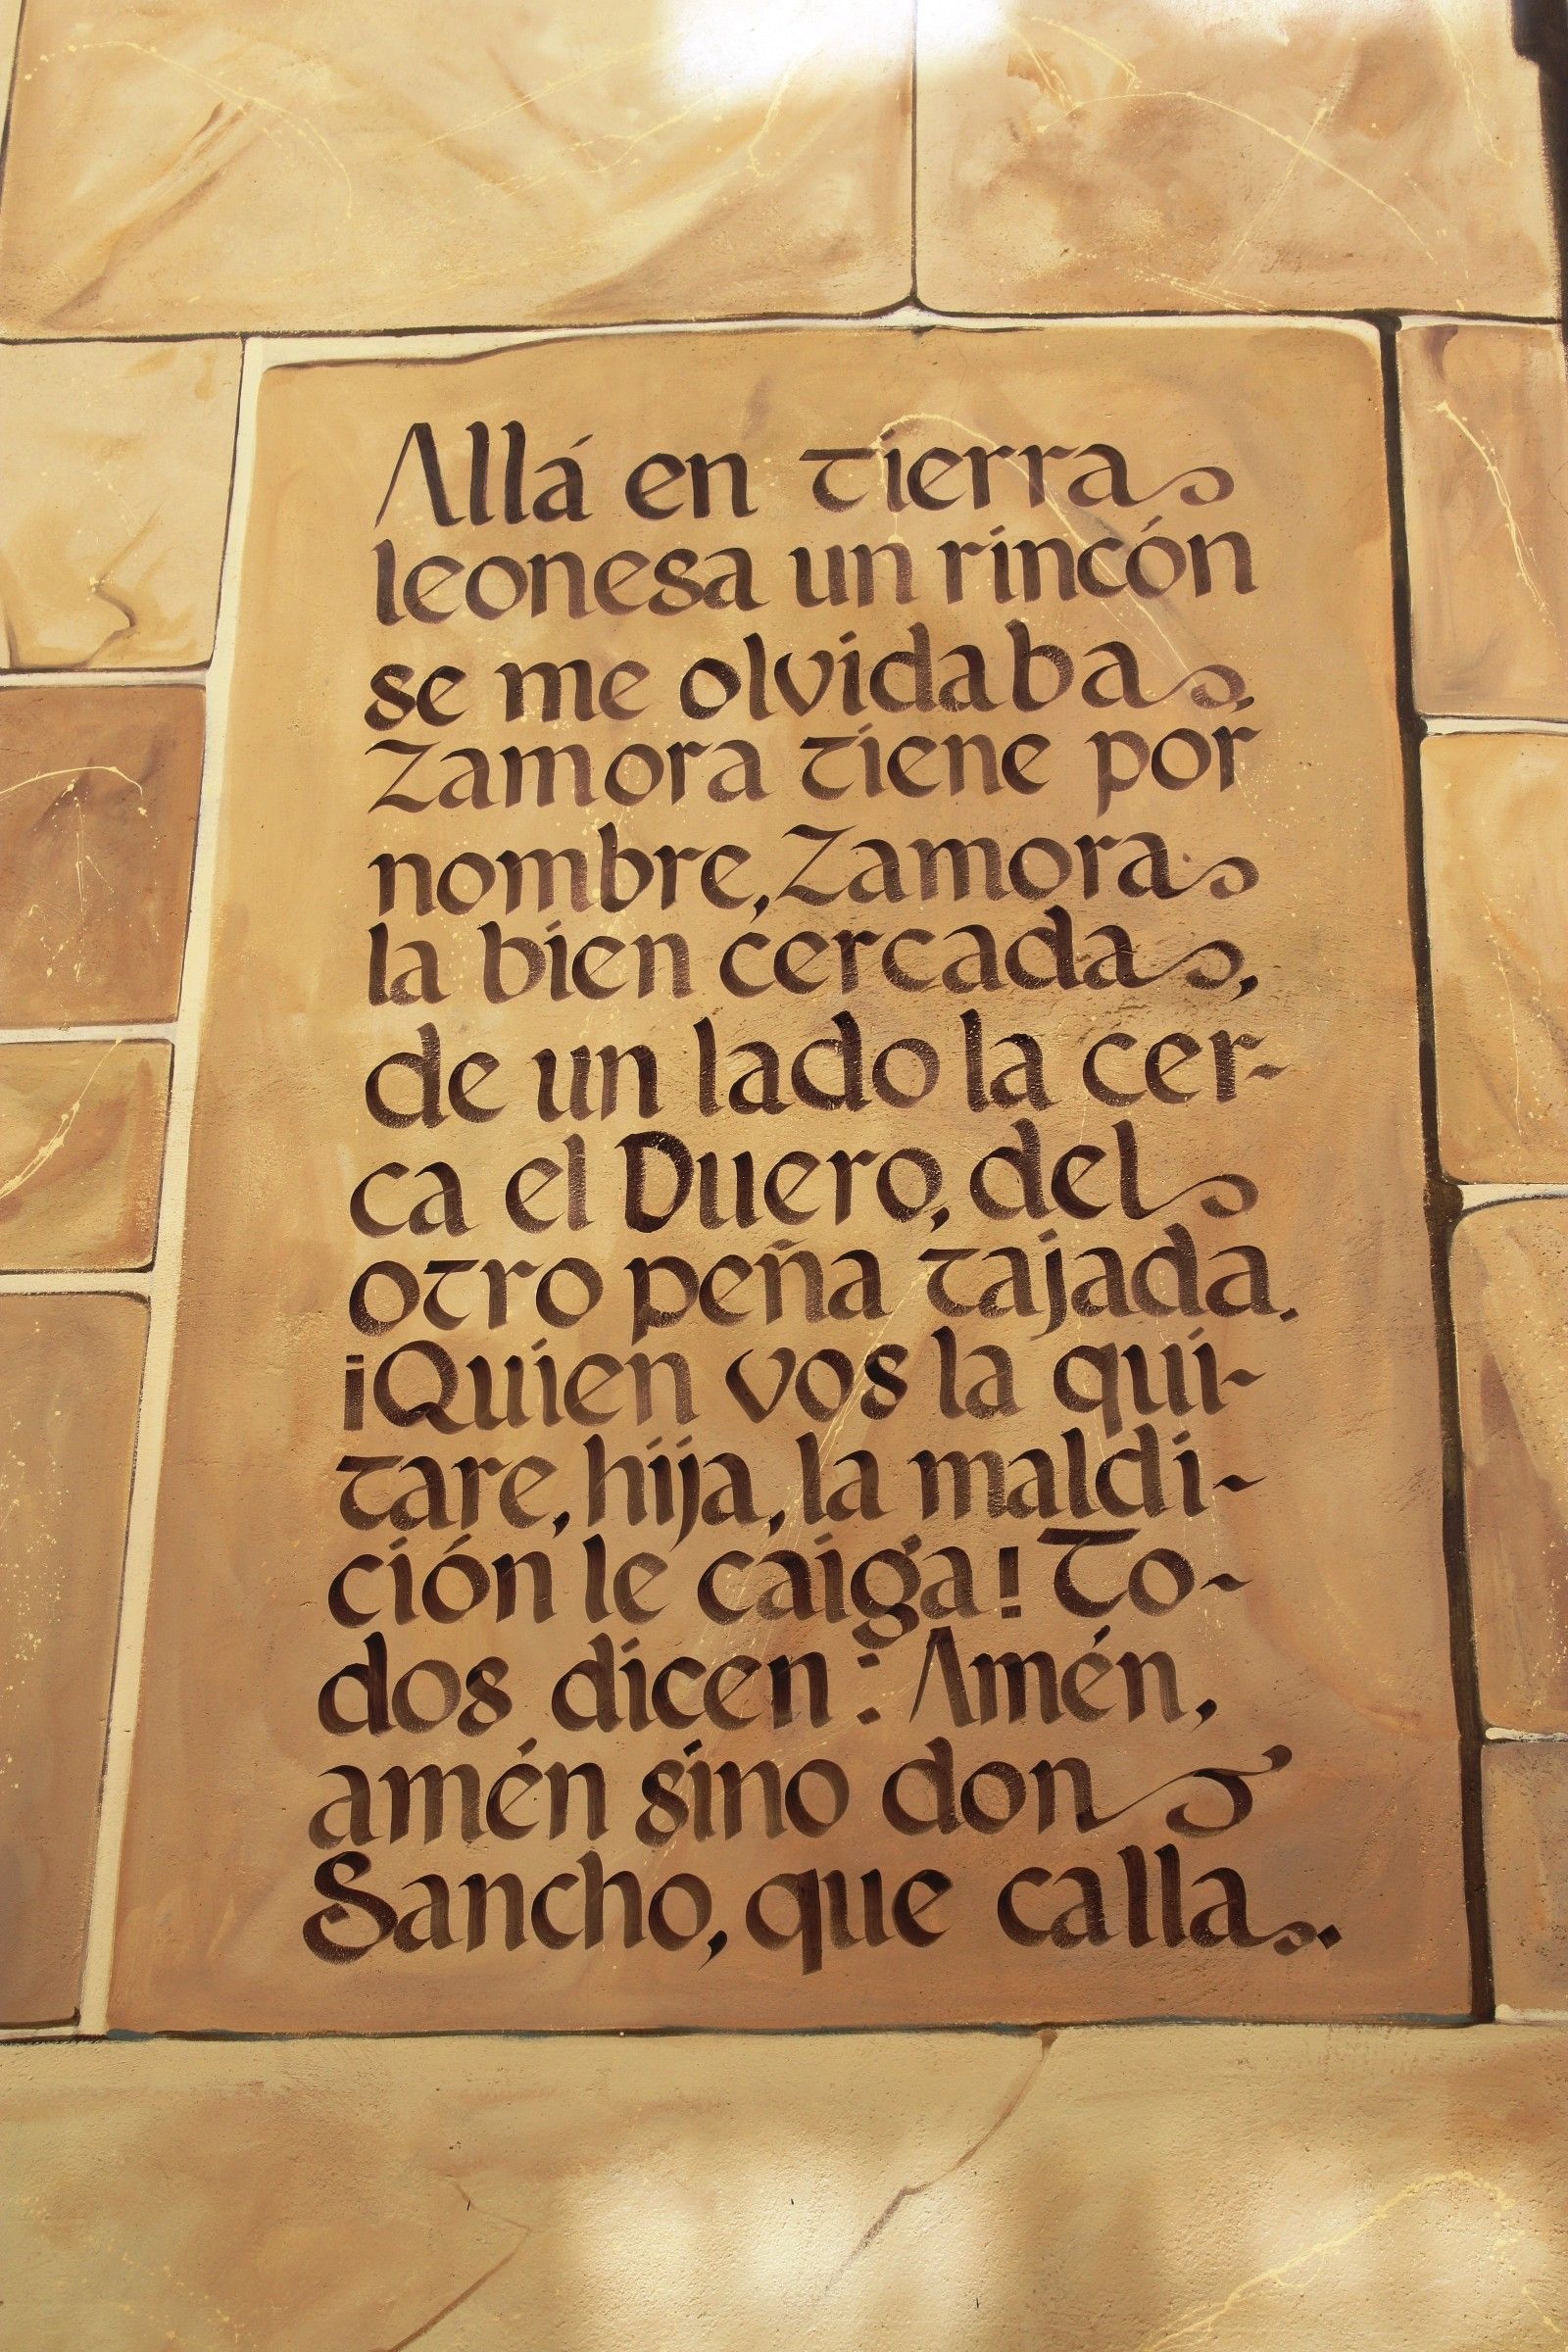 Allá en tierra
leonesa un rincón
se me olvidaba,
Zamora tiene por
nombre, Zamora
la bien cercada,
de un lado la cer-
ca el Duero, del
otro peña tajada.
¡Quien vos la qui-
tare, hija, la maldi-
ción le caiga! To-
dos dicen: Amén,
amén sino don
Sancho, que calla.